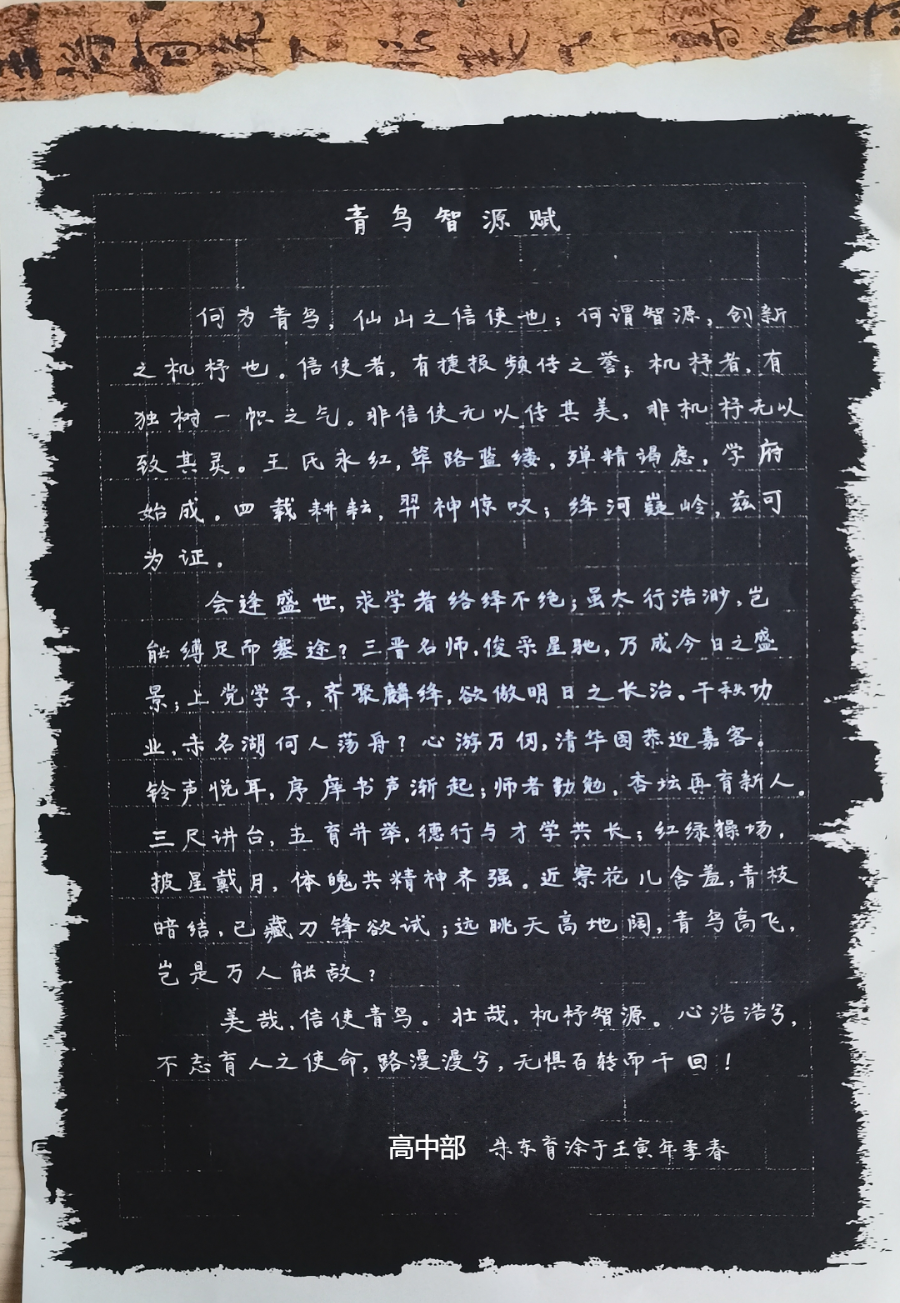 青鸟智源赋
何为青鸟，仙山之信使也；何谓智源，创新
之机杼也。信使者，有捷报频传之誉；机杼者，有
独树一帜之气。非信使无以传其美，非机杼无以
致其灵。王氏永红，筚路蓝缕，殚精竭虑，学府
始成。四载耕耘，羿神惊叹；绛河嶷岭，兹可
为证。
会逢盛世，求学者络绎不绝；虽太行浩渺，岂
能缚足而塞途？三晋名师，俊采星驰，乃成今日之盛
景；上党学子，齐聚麟绛，欲做明日之长治。千秩功
业，未名湖何人荡舟？心游万仞，清华园恭迎嘉客。
铃声悦耳，序庠书声渐起；师者勤勉，杏坛再育新人。
三尺讲台，五育并举，德行与才学共长；红绿操场，
披星戴月，体魄共精神齐强。近察花儿含羞，青枝
暗结，已藏刀锋欲试；远眺天高地阔，青鸟高飞，
岂是万人能敌？
美哉，信使青鸟。壮哉，机杼智源。心浩浩兮，
不忘育人之使命，路漫漫兮，无惧百转而千回！
高中部 朱东育涂于壬寅年季春